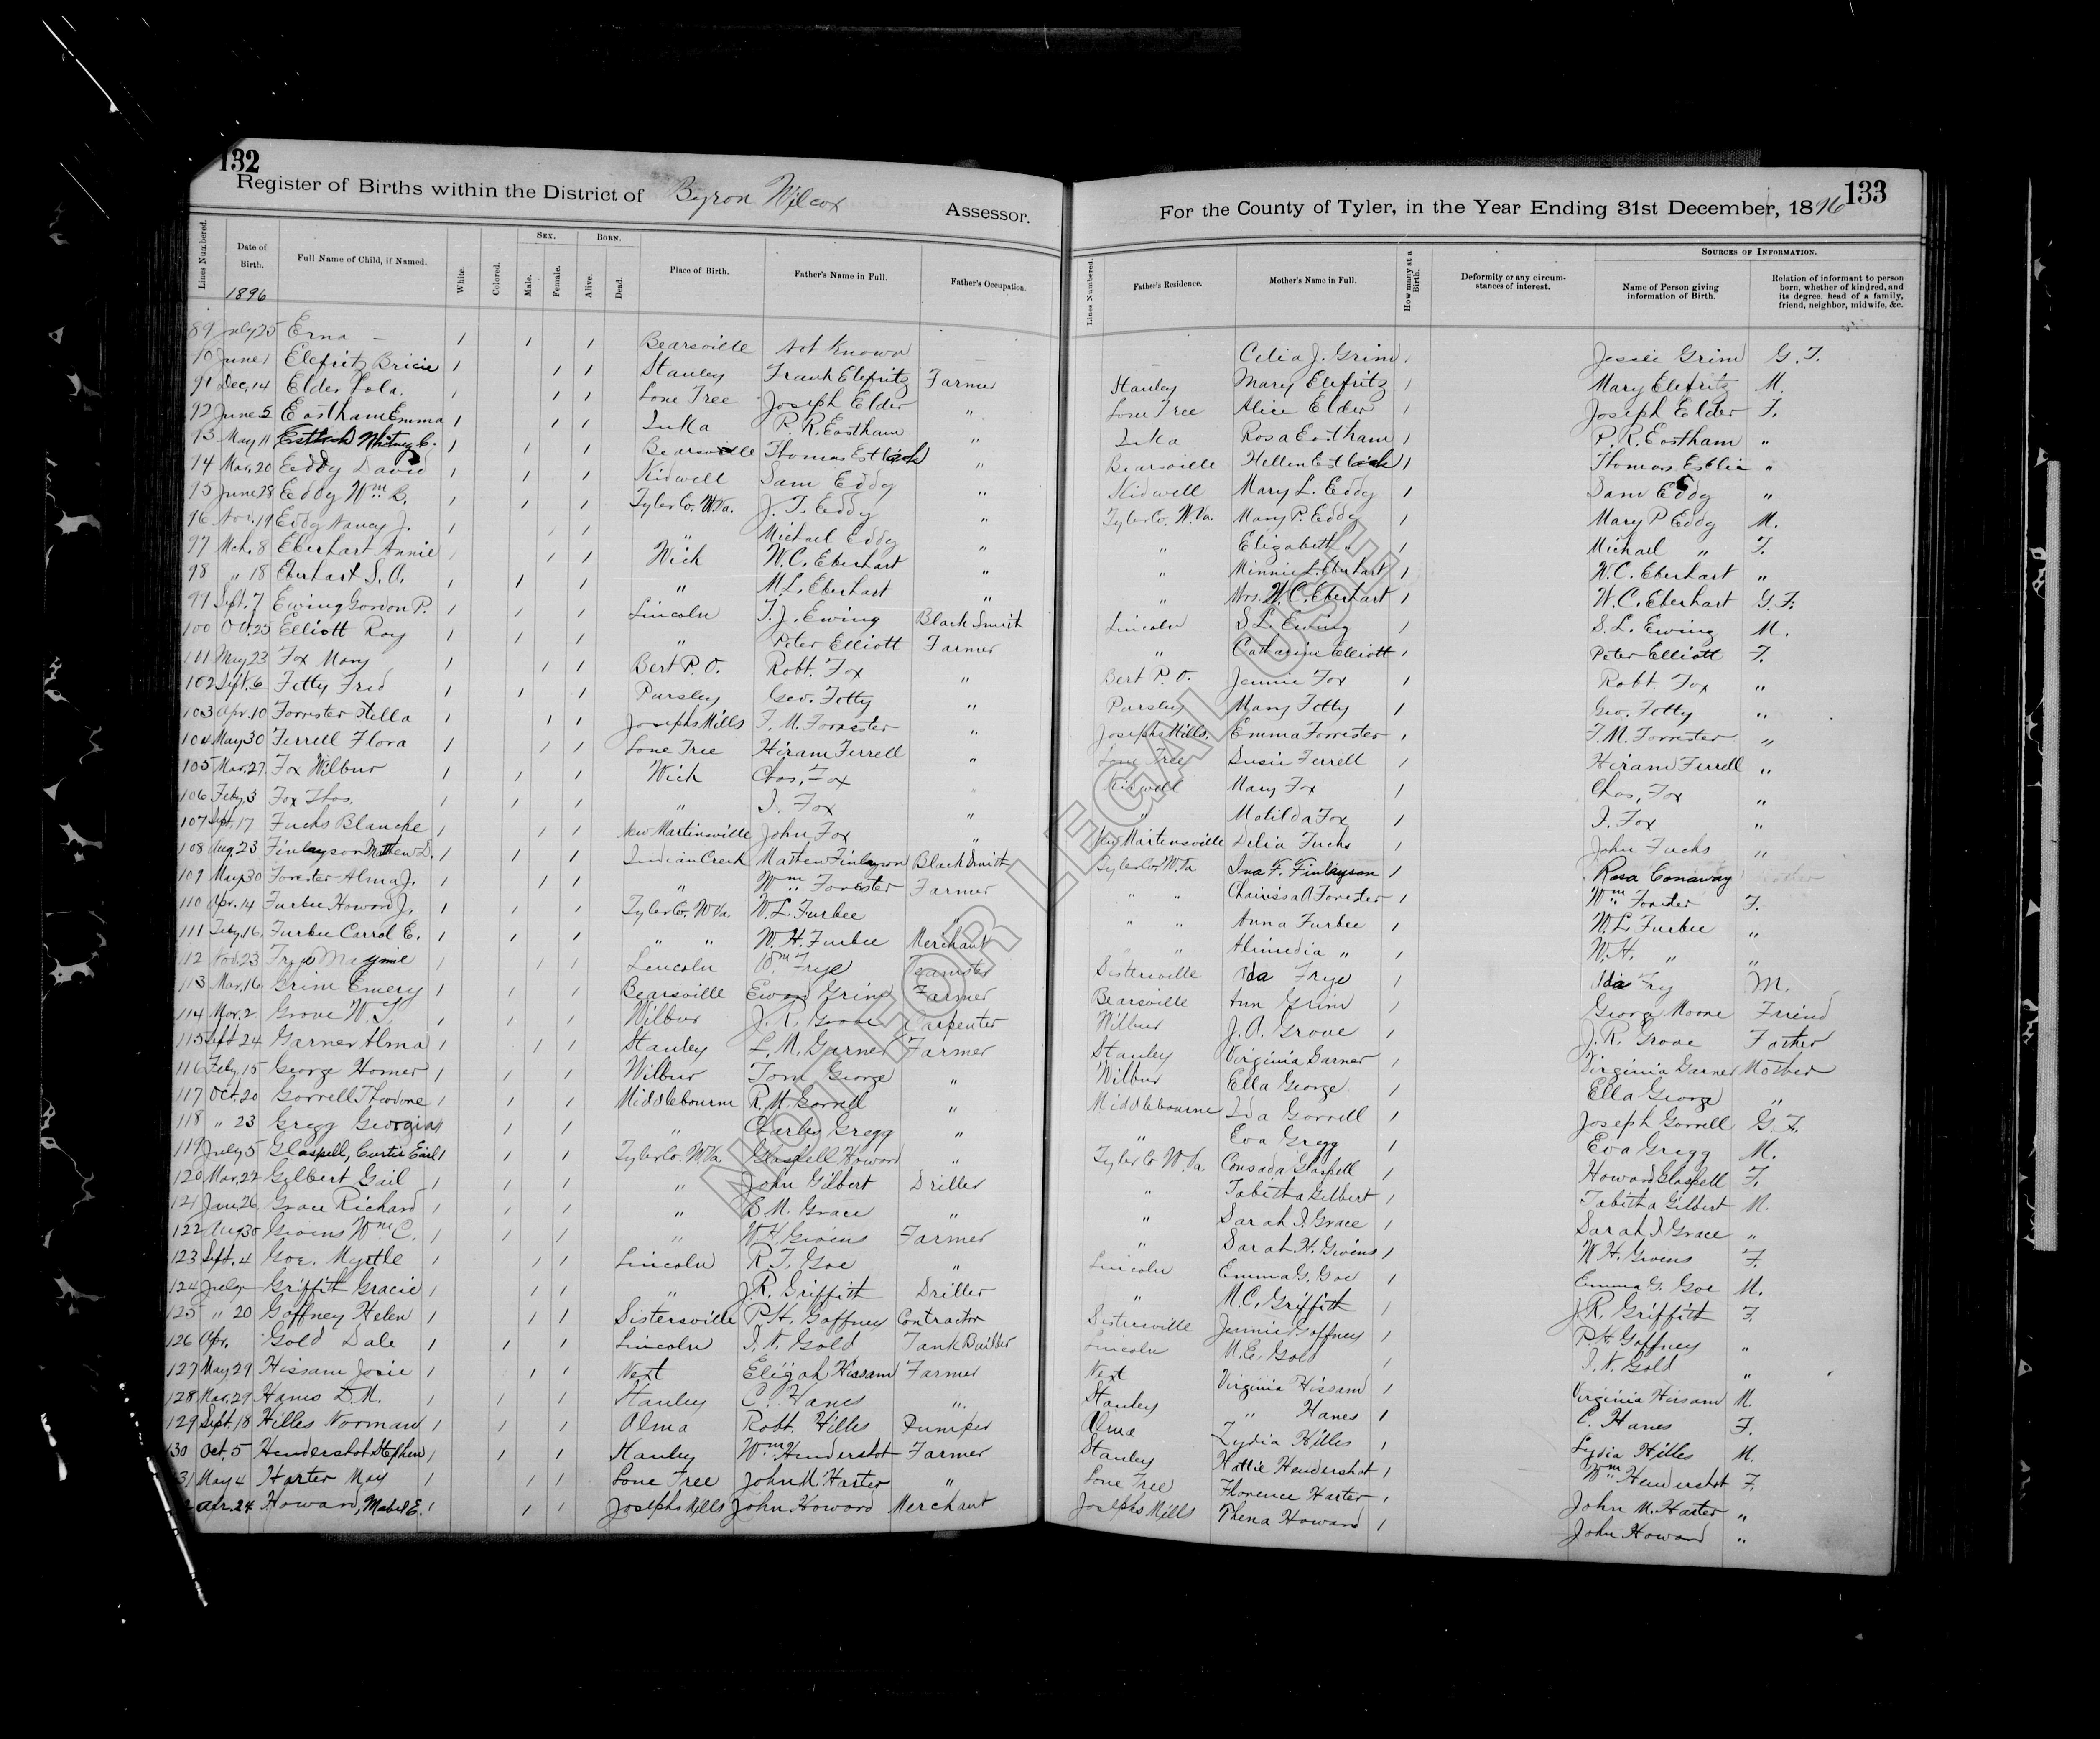 132
Register of Births within the District of Byron Wilcox Assessor.
For the County of Tyler, in the Year Ending 31st December, 1896 133
Lines Numbered. Date of Birth. Full Name of Child, if Named. White. Colored. Sex. Male. Female. Born. Alive. Dead. Place of Birth. Father's Name in Full. Father's Occupation.
Lines Numbered. Father's Residence. Mother's Name in Full. How many at a Birth. Deformity or any circumstances of interest. Sources of Information. Name of Person giving information of Birth. Relation of informant to person born, whether of kindred, and its degree. head of a family, friend, neighbor, midwife, &c.
1896
89 July 25 Erna – 1 1 1 Bearsville Not Known – – Celia J. Grim 1 Jessie Grim G. F.
90 June 1 Elefritz Bricie 1 1 1 Stanley Frank Elefritz Farmer Stanley Mary Elefritz 1 Mary Elefritz M.
91 Dec. 14 Elder Lola. 1 1 1 Lone Tree Joseph Elder " Lone Tree Alice Elder 1 Joseph Elder F.
92 June 5 Eastham Emma 1 1 1 Inka P. R. Eastham " Inka Rosa Eastham 1 P. R. Eastham "
93 May 11 Whitney C. 1 1 1 Bearsville Thomas " Bearsville Hellen 1 Thomas "
94 Mar. 20 Eddy David 1 1 1 Kidwell Sam Eddy " Kidwell Mary L. Eddy 1 Sam Eddy "
95 June 28 Eddy Wm B. 1 1 1 Tyler Co. W.Va. J. T. Eddy " Tyler Co. W.Va. Mary P. Eddy 1 Mary P Eddy M.
96 Nov. 19 Eddy Nancy J. 1 1 1 " Michael Eddy " " Elizabeth " 1 Michael " F.
97 Mch. 8 Eberhart Annie 1 1 1 Wick W. C. Eberhart " " Minnie L. Eberhart 1 W. C. Eberhart "
98 " 18 Eberhart S. A. 1 1 1 " M. L. Eberhart " " Mrs. W. C. Eberhart 1 W. C. Eberhart G. F.
99 Sept. 7 Ewing Gordon P. 1 1 1 Lincoln T. J. Ewing Black Smith Lincoln S L. Ewing 1 S. L. Ewing M.
100 Oct. 25 Elliott Roy 1 1 1 " Peter Elliott Farmer " Catharine Elliott 1 Peter Elliott F.
101 May 23 Fox Mary 1 1 1 Bert P. O. Robt. Fox " Bert P. O. Jennie Fox 1 Robt. Fox "
102 Sept. 6 Fetty Fred 1 1 1 Pursley Geo. Fetty " Pursley Mary Fetty 1 Geo. Fetty "
103 Apr. 10 Forrester Stella 1 1 1 Josephs Mills F. M. Forrester " Josephs Mills. Emma Forrester 1 F. M. Forrester "
104 May 30 Ferrell Flora 1 1 1 Lone Tree Hiram Ferrell " Lone Tree Susie Ferrell 1 Hiram Ferrell "
105 Mar. 27. Fox Wilbur 1 1 1 Wick Chas. Fox " Kidwell Mary Fox 1 Chas. Fox "
106 Feby. 3 Fox Thos. 1 1 1 " I. Fox " " Matilda Fox 1 I. Fox "
107 Sept. 17 Fuchs Blanche 1 1 1 New Martinsville John Fox " New Martinsville Delia Fuchs 1 John Fuchs "
108 Aug. 23 Finlayson Mathew D. 1 1 1 Indian Creek Mathew Finlayson Black Smith Tyler Co. W.Va Ina F. Finlayson 1 Rosa Conaway
109 May 30 Forester Alma J. 1 1 1 " Wm Forester Farmer " " Forrester 1 Wm Forster F.
110 Apr. 14 Furbee Howard J. 1 1 1 Tyler Co. W.Va. W. L. Furbee " " " Anna Furbee 1 W. L. Furbee "
111 Feby. 16. Furbee Carrol E. 1 1 1 " " W. H. Furbee Merchant " " Almedia " 1 W. H. " "
112 Nov. 23 Frye Mayme 1 1 1 Lincoln Wm Frye Teamster Sistersville Ida Frye 1 Ida Fry M.
113 Mar. 16 Grim Emery 1 1 1 Bearsville Grim Farmer Bearsville Ann Grim 1 George Moore Friend
114 Mar. 2 Grove W. T. 1 1 1 Wilbur J. R. Grove Carpenter Wilbur J. A. Grove 1 J. R. Grove Father
115 Sept 24 Garner Alma 1 1 1 Stanley L. M. Garner Farmer Stanley Virginia Garner 1 Virginia Garner Mother
116 Feby. 15 George Homer 1 1 1 Wilbur Tom George " Wilbur Ella George 1 Ella George "
117 Oct. 20 Gorrell Theodore 1 1 1 Middlebourne R. M. Gorrell " Middlebourne Ida Gorrell 1 Joseph Gorrell G. F.
118 " 23 Gregg Georgia 1 1 1 " Charles Gregg " " Eva Gregg 1 Eva Gregg M.
119 July 5 Glaspell, Curtis Earl 1 1 1 Tyler Co. W.Va. Glaspell Howard " Tyler Co W.Va. Consada Glaspell 1 Howard Glaspell F.
120 Mar. 22 Gilbert Gail 1 1 1 " John Gilbert Driller " Tabitha Gilbert 1 Tabitha Gilbert M.
121 Jan. 26 Grace Richard 1 1 1 " E. M. Grace " " Sarah I. Grace 1 Sarah I. Grace "
122 Aug 30 Givens Wm C. 1 1 1 " W H Givens Farmer " Sarah H. Givens 1 W. H. Givens F.
123 Sept. 4 Goe. Myrtle 1 1 1 Lincoln R. T. Goe " Lincoln Emma G. Goe 1 Emma G. Goe M.
124 July – Griffith Gracie 1 1 1 " J. R. Griffith Driller " M. C. Griffith 1 J. R. Griffith F.
125 " 20 Gaffney Helen 1 1 1 Sistersville P. H. Gaffney Contractor Sistersville Jennie Gaffney 1 P. H. Gaffney "
126 Apr. Gold Dale 1 1 1 Lincoln I. N. Gold Tank Builder Lincoln M. E. Gold 1 I. N. Gold "
127 May 29 Hissam Josie 1 1 1 Next Elijah Hissam Farmer Next Virginia Hissam 1 Virginia Hissam M.
128 Mar. 29 Hanes D. M. 1 1 1 Stanley C. Hanes " Stanley " Hanes 1 C. Hanes F.
129 Sept. 18 Hilles Norman 1 1 1 Alma Robt. Hilles Pumper Alma Lydia Hilles 1 Lydia Hilles M.
130 Oct. 5 Hendershot Stephen 1 1 1 Stanley Wm Hendershot Farmer Stanley Hattie Hendershot 1 Wm Hendershot F.
131 May 4 Harter May 1 1 1 Lone Tree John M. Harter " Lone Tree Florence Harter 1 John M. Harter "
Apr. 24 Howard, Mabel E. 1 1 1 Josephs Mills John Howard Merchant Josephs Mills Thena Howard 1 John Howard "
NOT FOR LEGAL USE